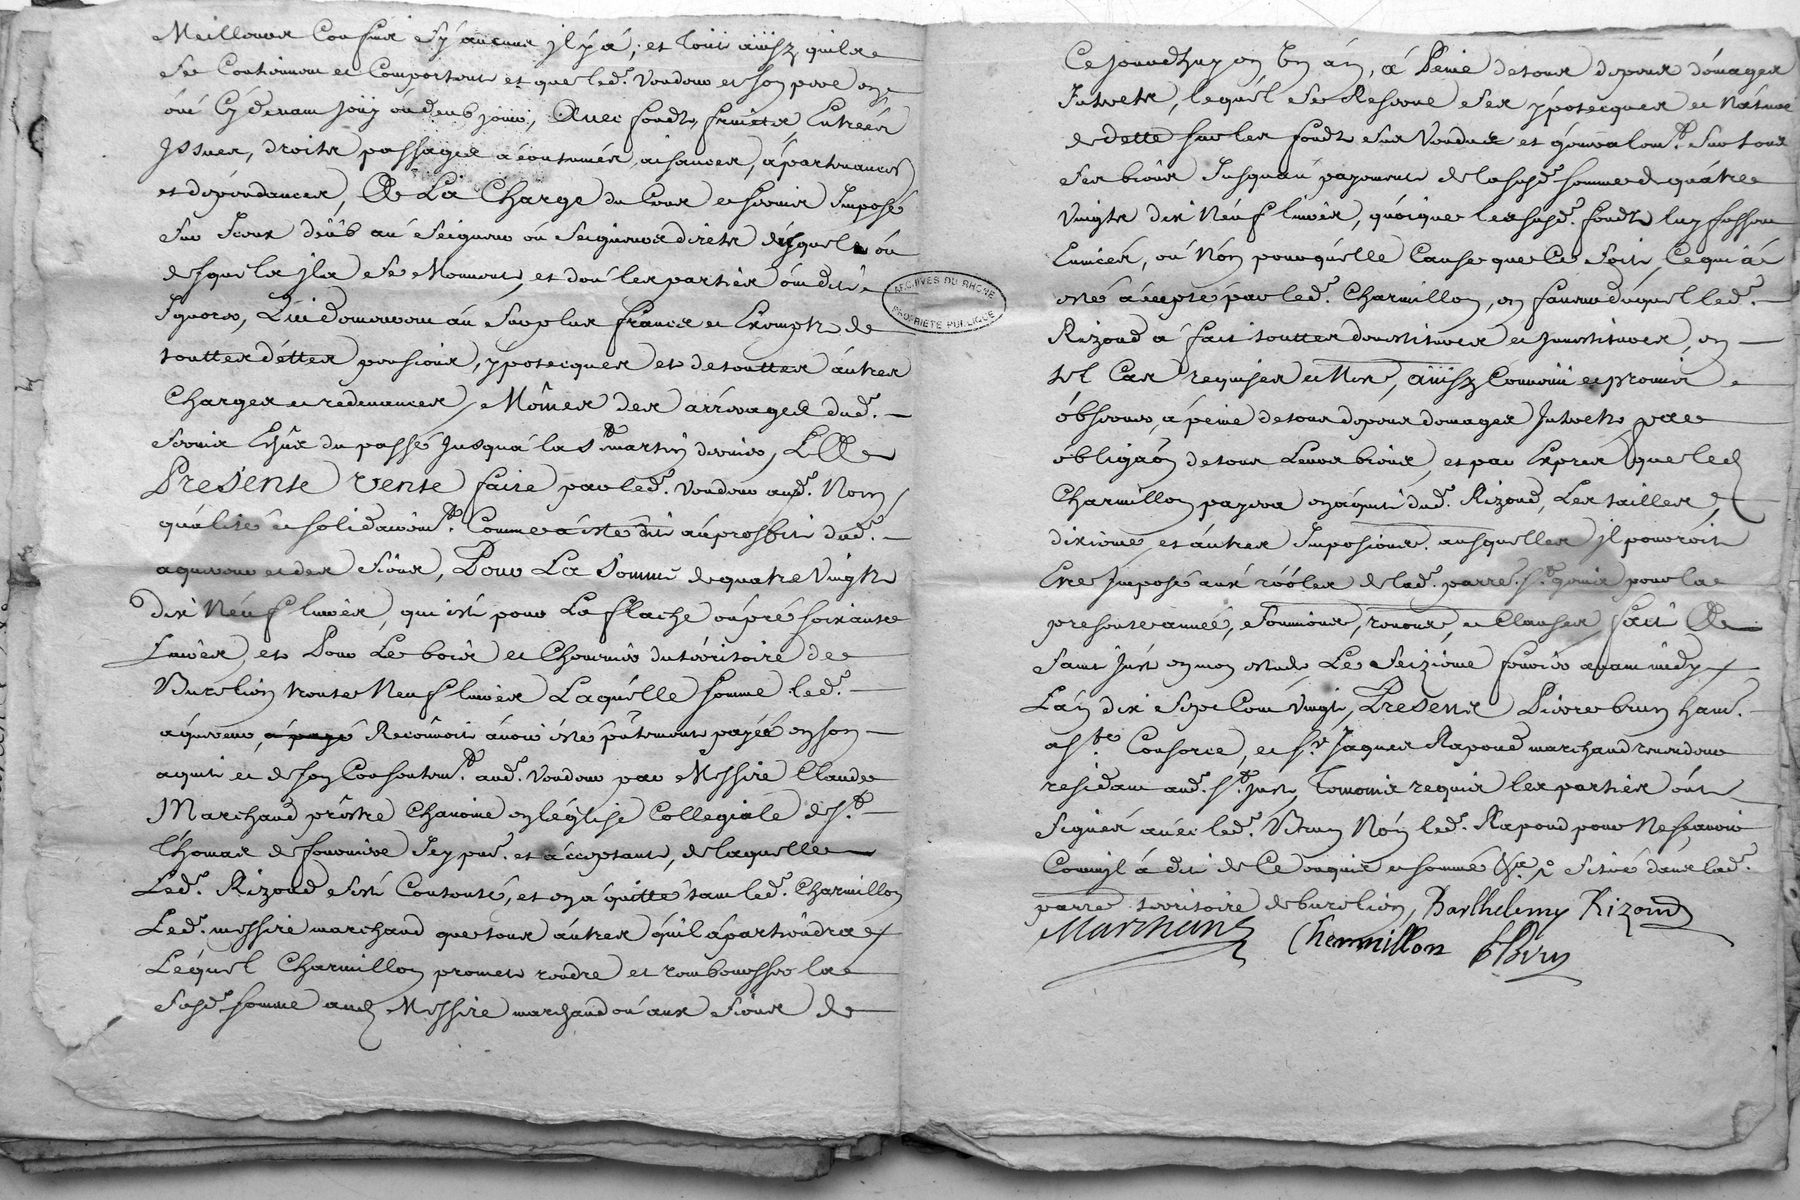 Meilleurs Confins sy aucuns jl y á, et tout ainsy quilz
se Contiennent et Comportent et que led. vendeur et son pere en
ont Cy devant joüy ou deub jouir, Avec fondz, fruictz Entrées
Issues, droits passages acoutumés, aisances, apartenances
et dépendances, A La Charge du Cens et servis Imposé
sur Iceux deub au Seigneur ou Seigneurs directs desquels ou
desquelz jlz se Meuvent, et dont les parties ont dit
Ignorer, Qui demeureront au surplus francs et Exempts de
touttes déttes pensions, ypotecques et de touttes autres
Charges et redevances, Mémes des arrérages dud.
servis Eschûs du passé Jusquá la St. martin dernier, Elle
Présente vente faite par led. vendeur aud. Nom
qualité et solidairemt. Comme a esté dit au proffit dud.
aquereur et des siens, Pour La Somme de quatre Vingts
dix Neuf livres, qui est pour La flache ou pré soixante
Livres, et Pour Le bois et Chenevier du térritoire de
Burelion trente Neuf livres Laquélle somme led.
aquereur, a payé Reconnoit avoir esté pntement payée en son
aquit et de son Consentemt. aud. vendeur par Messire Claude
Marchand prêtre Chanoine en léglise Collegiale de St.
Thomas de fourviere Icy pnt. et acceptant, de laquelle
Led. Rizoud s'est Contenté, et en a quitté tant led. Charmillon
Led. messire marchand que tous autres qu'il apartiendra
Lequél Charmillon promet rendre et rembourser la
susd. somme aud. Messire marchand ou aux siens de
ARCHIVES DU RHONE
PROPRIETE PUBLIQUE
Ce jourdhuy en Un án, á Peine de tous depens dómages
Intrets, lequél se Reserve ses ypotecques et Nature
de dette sur les fondz sus Vendus et génerallemt. sur tous
ses biens Jusquau payement de la susd. somme de quatre
Vingts dix Neuf livres, quóique les susd. fondz luy fussent
Evincés, ou Nón pour quélle Cause que Ce soit, Ce qui á
esté accepté par led. Charmillon, en faveur duquel led.
Rizoud a fait touttes devestitures et Investitures, en
tel Cas requises et Nres., ainsy Convenu et promis
observer, a peine de tous depens domages Intrets par
obligaón de tous Leurs biens, et par Exprès que led
Charmillon payera en áquit dud. Rizoud, Les tailles,
dixieme, et autres Imposions. ausquelles jl pourroit
Etre Imposé aux róóles de lad. parre. St. genis pour la
presente année, soumions, renons, et Clauses, fait A
Saint Just en mon etude Le Seizieme fevrier avant midy
Lan dix Sept Cent Vingt, Présents Pierre brun hant.
a Ste. Consorce, et Sr. Jaques Rapoud marchand revendeur
residant aud. St. Just, Temoins requis les parties ont
signés avec led. Brun Nón led. Rapoud pour Ne scavoir
Comme jl á dit de Ce enquis et sommé situé dans lad.
parre territoire de burelion, Barthelemy Rizoud
Marchand Charmillon PBrun